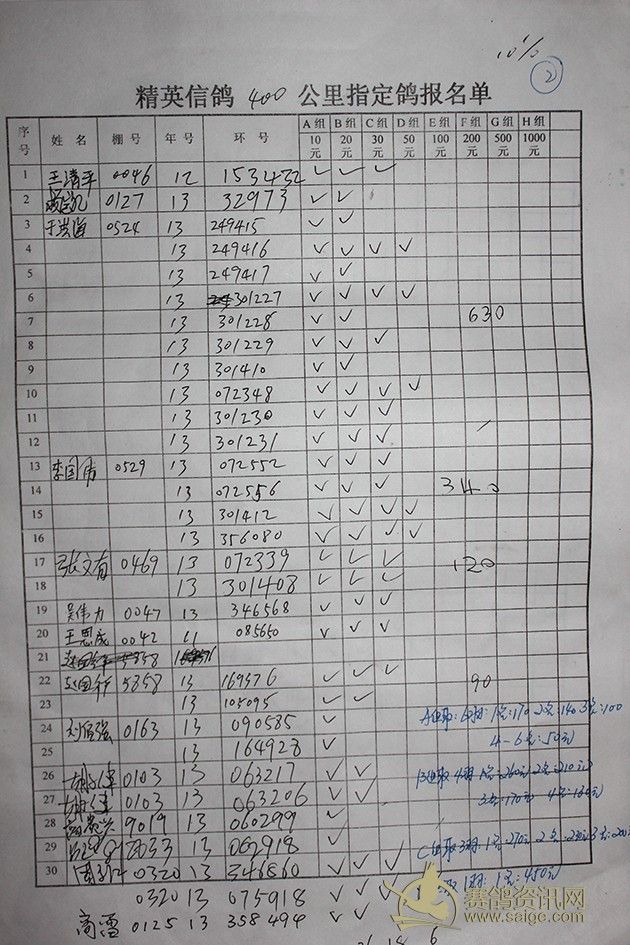 10%
②
精英信鸽 400 公里指定鸽报名单
序号 姓名 棚号 年号 环号 A组10元 B组20元 C组30元 D组50元 E组100元 F组200元 G组500元 H组1000元
1 王清平 0046 12 153432 ✓ ✓ ✓
2 0127 13 32973 ✓ ✓
3 于洪海 0524 13 249415 ✓ ✓
4 13 249416 ✓ ✓ ✓ ✓
5 13 249417 ✓ ✓
6 13 301227 ✓ ✓ ✓ ✓
7 13 301228 ✓ ✓ 630
8 13 301229 ✓ ✓ ✓
9 13 301410 ✓ ✓
10 13 072348 ✓ ✓ ✓ ✓
11 13 301230 ✓ ✓ ✓
12 13 301231 ✓ ✓ ✓
13 李国伟 0529 13 072552 ✓ ✓ ✓
14 13 072556 ✓ ✓ ✓ 340
15 13 301412 ✓ ✓ ✓ ✓
16 13 356080 ✓ ✓ ✓ ✓
17 张文有 0469 13 072339 ✓ ✓ ✓ 120
18 13 301408 ✓ ✓ ✓
19 吴伟力 0047 13 346568 ✓ ✓ ✓
20 王思成 0042 11 085650 ✓ ✓ ✓
21
22 赵国行 5858 13 169576 ✓ ✓ ✓ 90
23 13 105095 ✓ ✓
24 刘佰强 0163 13 090585 ✓ ✓
A组取:6羽:1名:170 2名:140 3名:100
25 13 164928 ✓
4-6名:50元
26 0103 13 063217 ✓ ✓
B组取4羽 1名:260元 2名:210元
27 0103 13 063206 ✓ ✓
3名:170元 4名:160元
28 9019 13 060299 ✓
29 13 062918 ✓
C组取3羽:1名:270元 2名:
30 0320 13 346860 ✓ ✓ ✓
1羽:1名:450元
0320 13 075918 ✓ ✓ ✓
商雪 0125 13 358494 ✓ ✓ ✓
赛鸽资讯网
www.saige.com